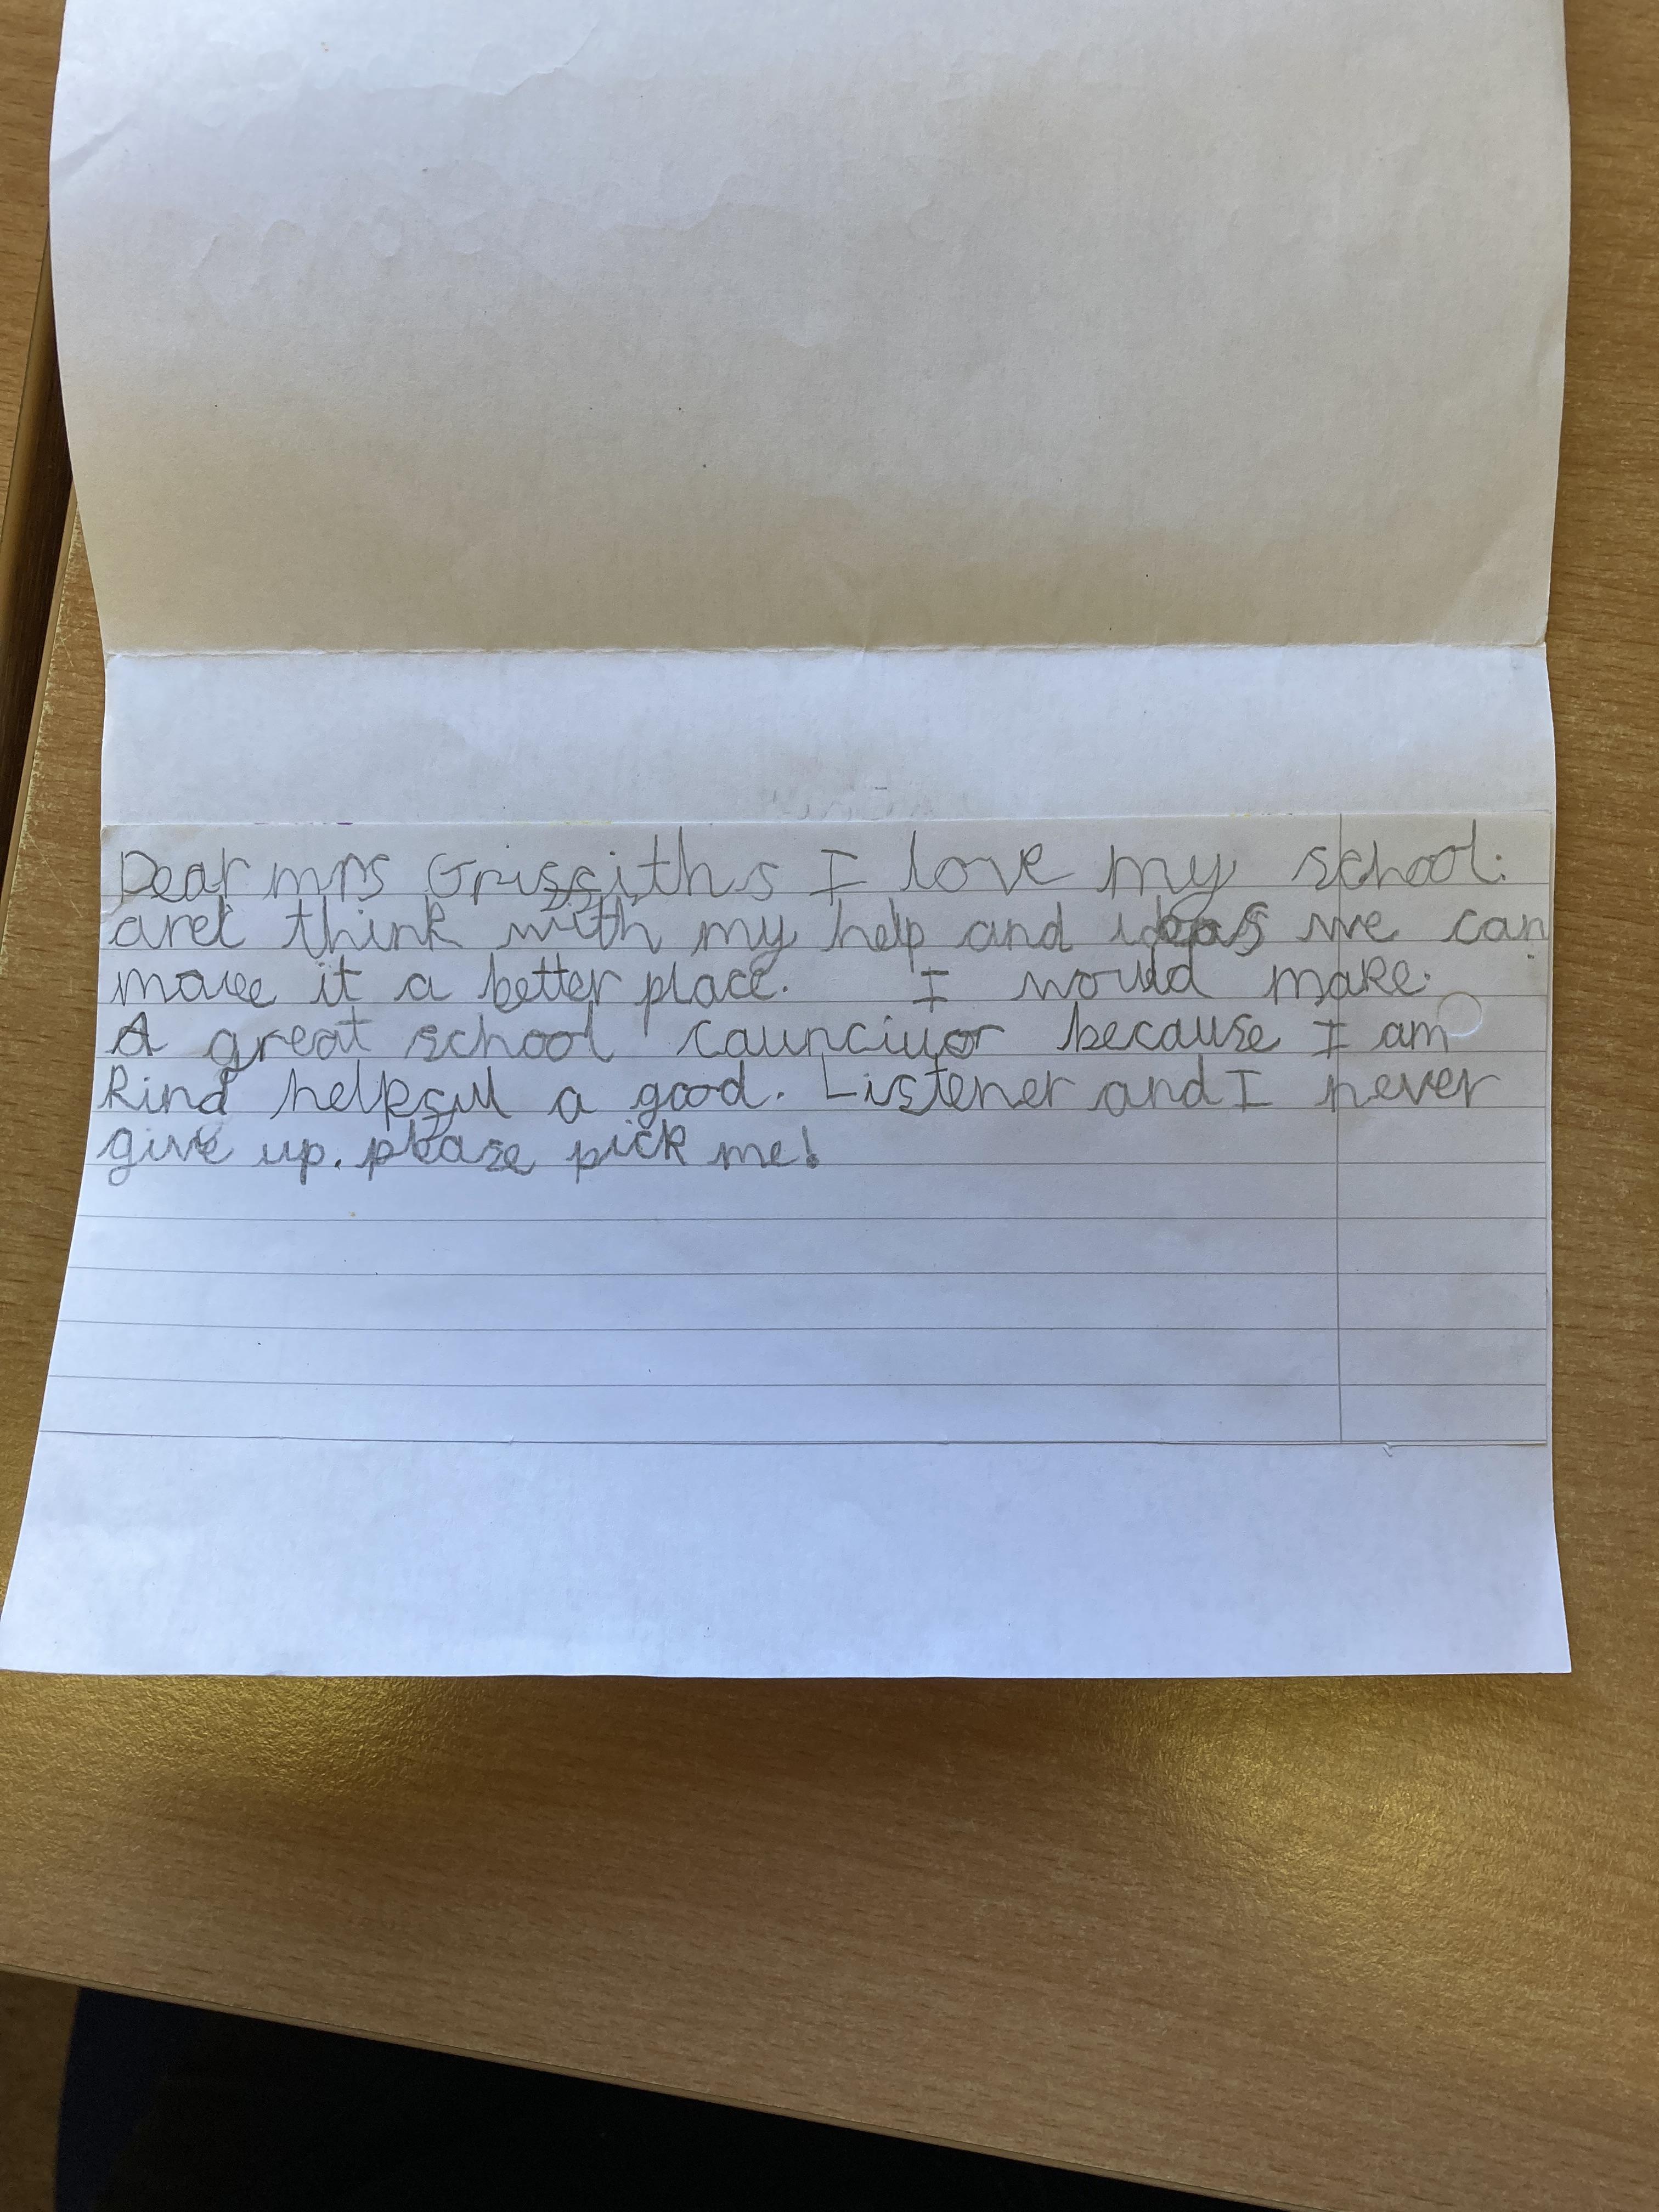 Dear mrs Griffiths I love my school.
and think with my help and ideas we can
make it a better place. I would make.
A great school councillor because I am
kind helpful a good. Listener and I never
give up. please pick me!